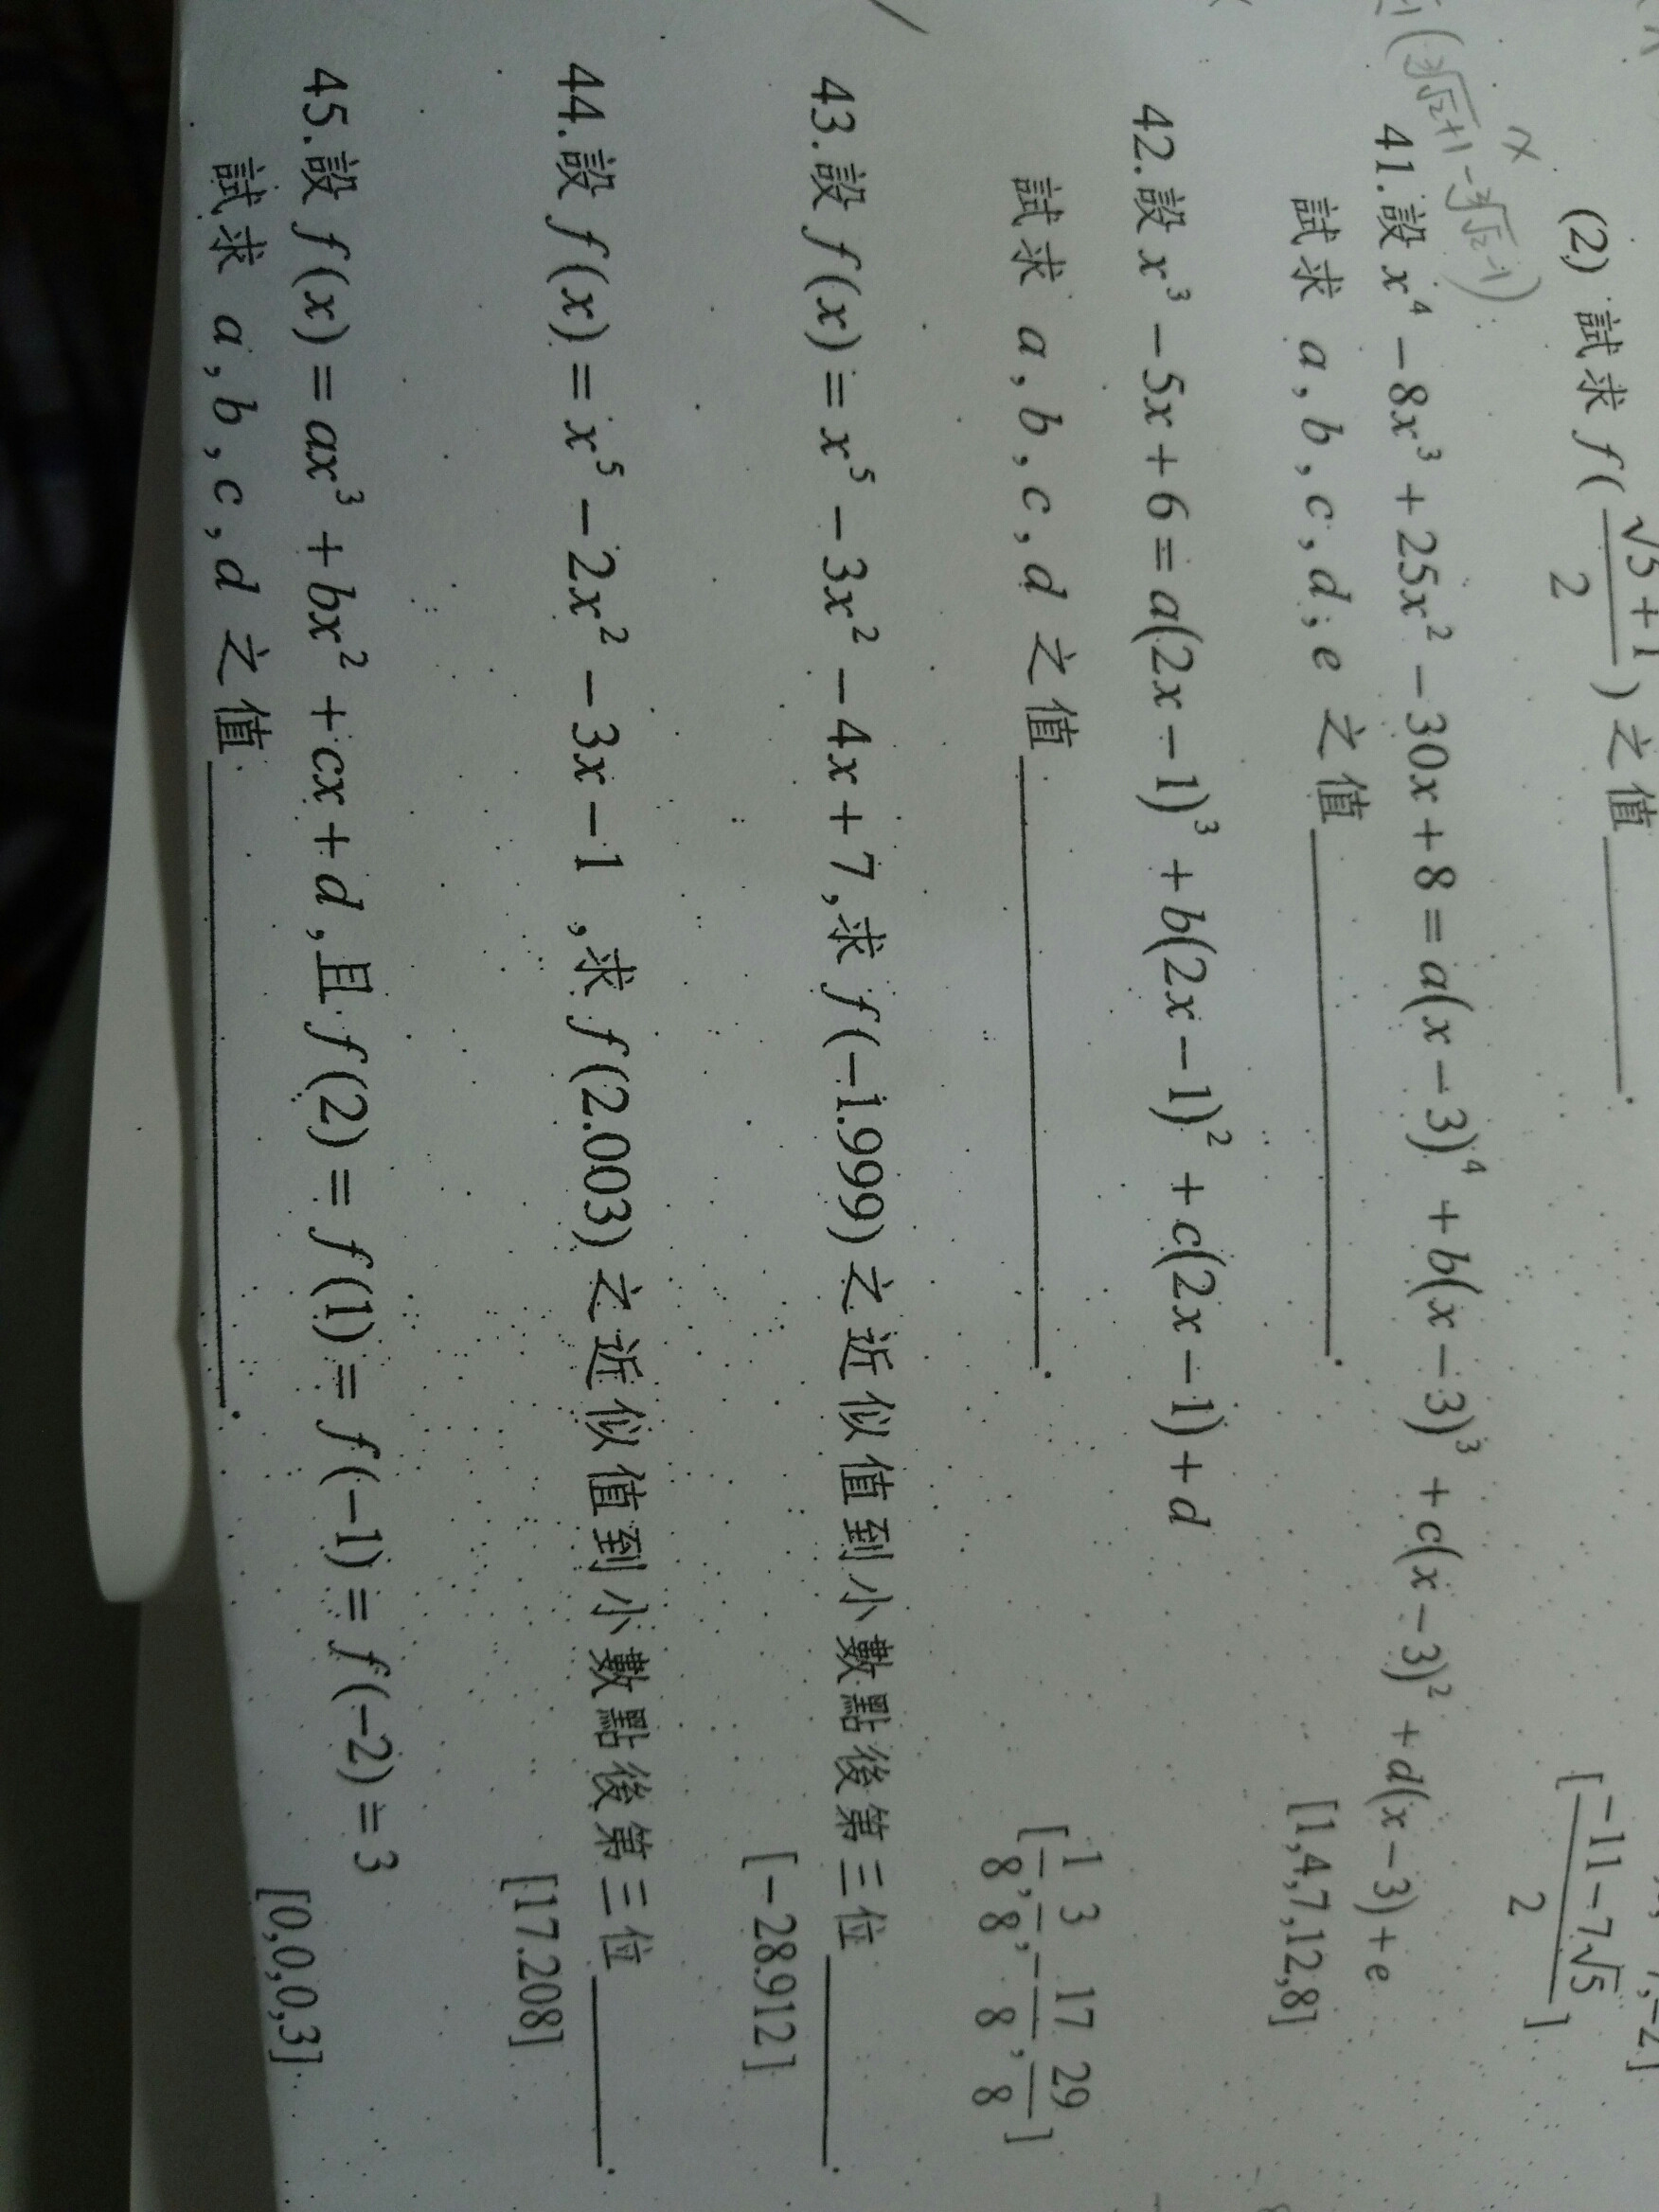 (2) 試求 f(\frac{\sqrt{5}+1}{2}) 之值 ________.
[\frac{-11-7\sqrt{5}}{2}]
(\sqrt[3]{\sqrt{2}+1} - \sqrt[3]{\sqrt{2}-1})
41.設 x⁴ − 8x³ + 25x² − 30x + 8 = a(x − 3)⁴ + b(x − 3)³ + c(x − 3)² + d(x − 3) + e
試求 a , b , c , d , e 之值 ________.
[1,4,7,12,8]
42.設 x³ − 5x + 6 = a(2x − 1)³ + b(2x − 1)² + c(2x − 1) + d
試求 a , b , c , d 之值 ________.
[\frac{1}{8},\frac{3}{8},-\frac{17}{8},\frac{29}{8}]
43.設 f(x) = x⁵ − 3x² − 4x + 7 ,求 f(−1.999) 之近似值到小數點後第三位 ________.
[−28.912]
44.設 f(x) = x⁵ − 2x² − 3x − 1 ,求 f(2.003) 之近似值到小數點後第三位 ________.
[17.208]
45.設 f(x) = ax³ + bx² + cx + d ,且 f(2) = f(1) = f(−1) = f(−2) = 3
試求 a , b , c , d 之值 ________.
[0,0,0,3]